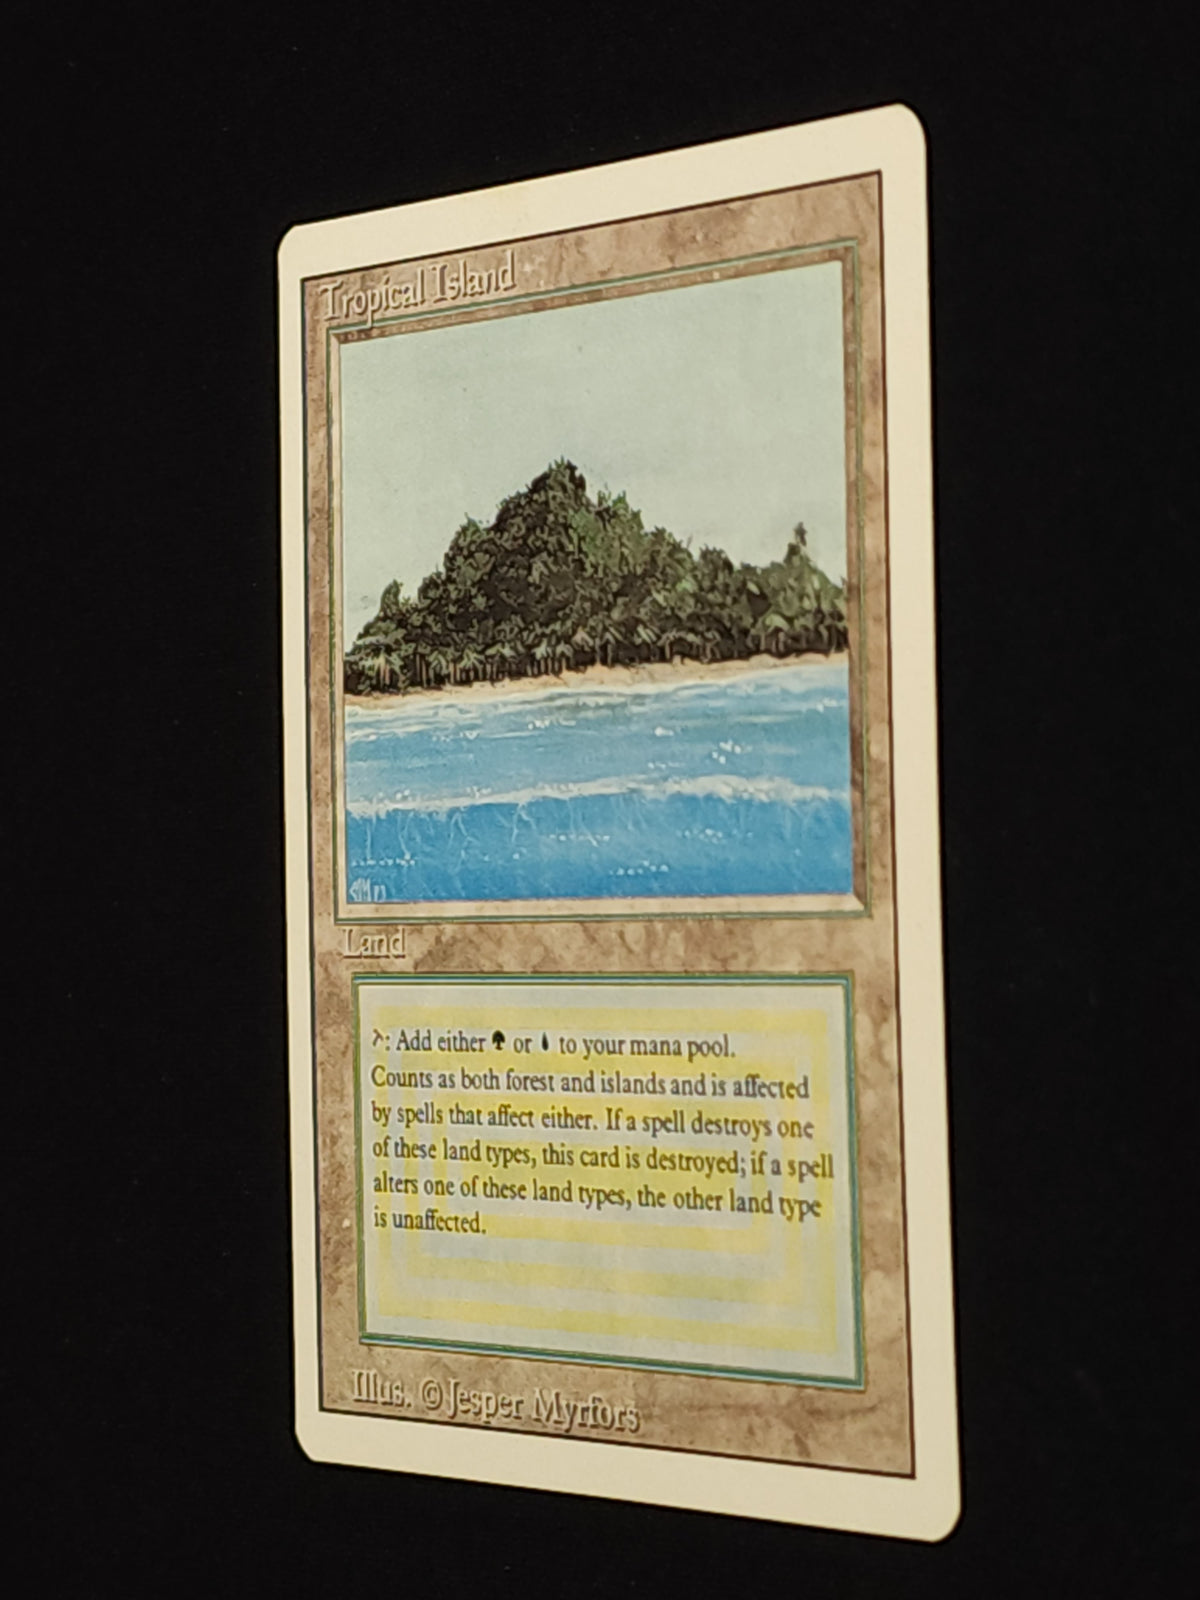 Tropical Island
Land
: Add either or to your mana pool.
Counts as both forest and islands and is affected
by spells that affect either. If a spell destroys one
of these land types, this card is destroyed; if a spell
alters one of these land types, the other land type
is unaffected.
Illus. © Jesper Myrfors